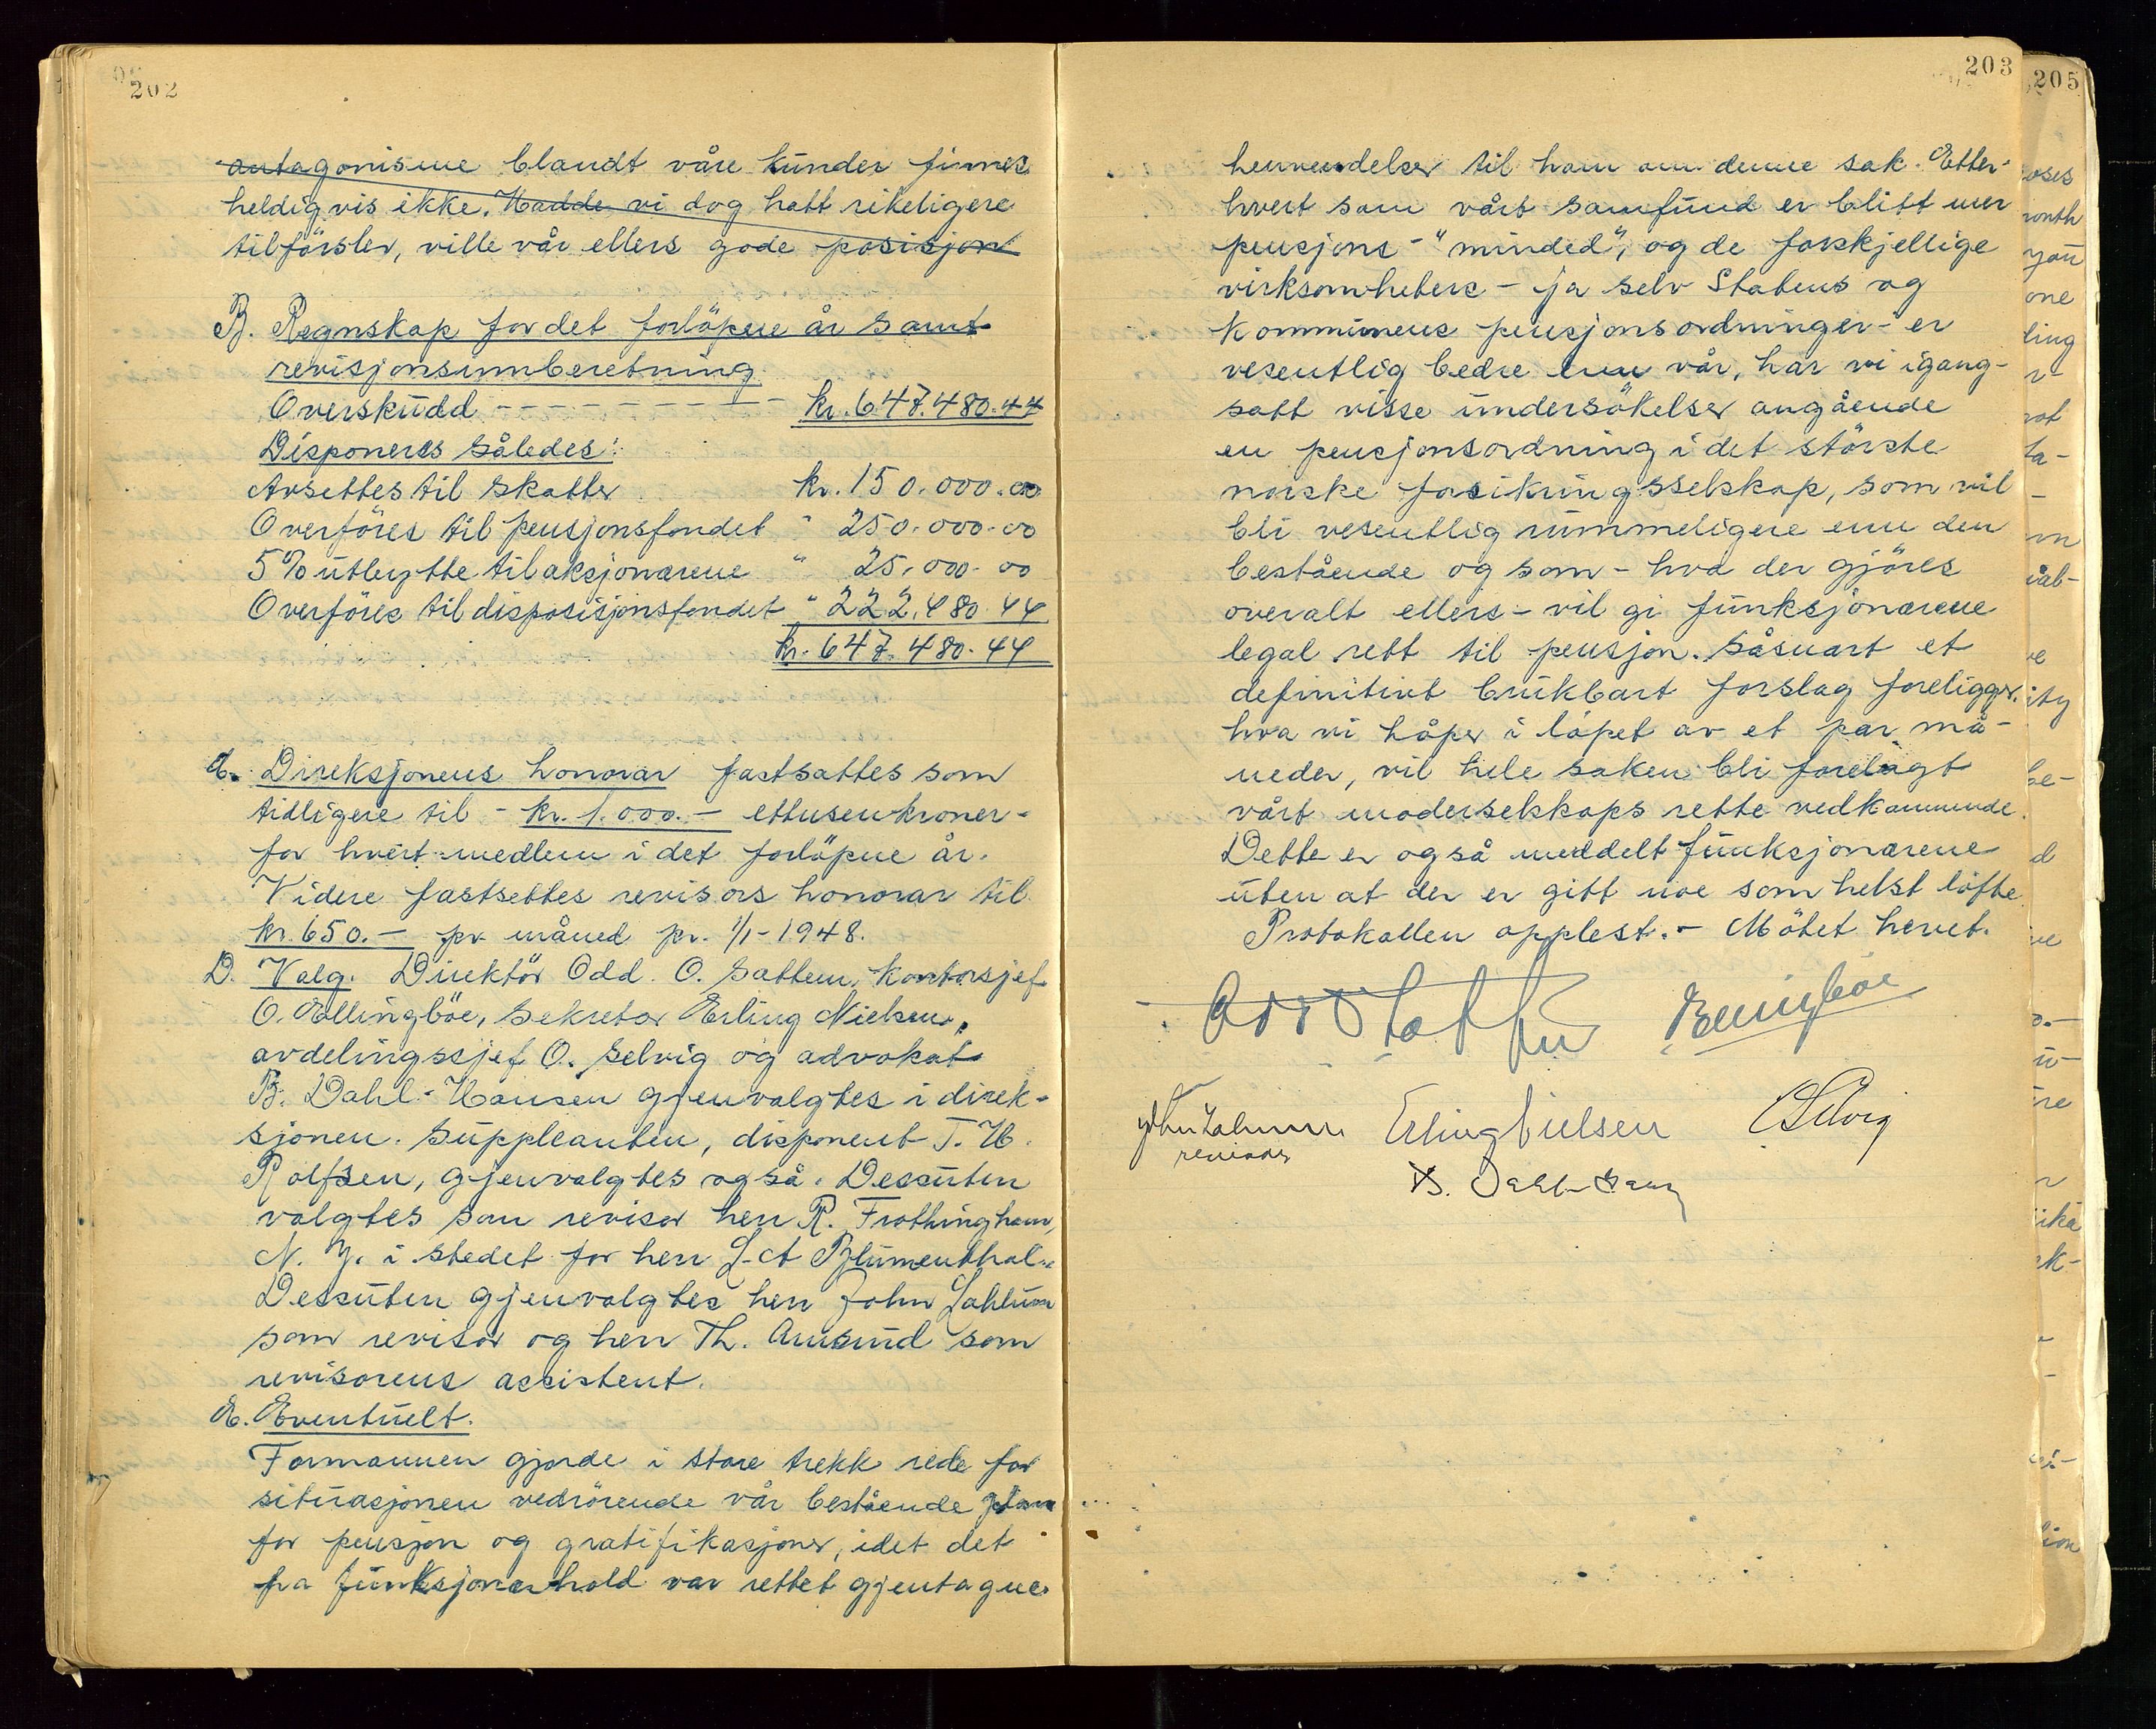 202
antagonisme blandt våre kunder finnes
heldigvis ikke. Hadde vi dog hatt rikeligere
tilförsler, ville vår ellers gode posisjon
B. Regnskap for det forlöpne år samt
revisjonsinnberetning.
Overskudd - - - - - - - - kr. 647.480.44
Disponeres således:
Avsettes til skatter kr. 150.000.00
Overföres til pensjonsfondet " 250.000.00
5% utbytte til aksjonærene " 25.000.00
Overföres til disposisjonsfondet " 222.480.44
kr. 647.480.44
C. Direksjonens honorar fastsattes som
tidligere til - kr. 1.000.- ettusenkroner -
for hvert medlem i det forlöpne år.
Videre fastsettes revisors honorar til
kr. 650.- pr. måned pr. 1/1-1948.
D. Valg. Direktör Odd. O. Sattem, kontorsjef
O. Ellingböe, sekretær Erling Nielsen,
avdelingssjef O. Selvig og advokat
B. Dahl-Hansen gjenvalgtes i direk-
sjonen. Suppleanten, disponent T. H.
Rolfsen, gjenvalgtes også. Dessuten
valgtes som revisor herr R. Frothingham,
N. Y. i stedet for herr L. A. Blumenthal.
Dessuten gjenvalgtes herr John Lahlum
som revisor og herr Th. Amsund som
revisorens assistent.
E. Eventuelt.
Formannen gjorde i store trekk rede for
situasjonen vedrörende vår bestående plan
for pensjon og gratifikasjoner, idet det
fra funksjonærhold var rettet gjentagne
203
henvendelser til ham om denne sak. Etter-
hvert som vårt samfund er blitt mer
pensjons-"minded", og de forskjellige
virksomheters - ja selv Statens og
Kommunens pensjonsordninger - er
vesentlig bedre enn vår, har vi igang-
satt visse undersökelser angående
en pensjonsordning i det störste
norske forsikringsselskap, som vil
bli vesentlig rummeligere enn den
bestående og som - hva der gjöres
overalt ellers - vil gi funksjonærene
legal rett til pensjon. Såsnart et
definitivt brukbart forslag foreligger,
hva vi håper i löpet av et par må-
neder, vil hele saken bli forelagt
vårt moderselskaps rette vedkommende.
Dette er også meddelt funksjonærene
uten at der er gitt noe som helst löfte.
Protokollen opplest. - Mötet hevet.
Odd O Sattem Ellingböe
John Lahlum Erling Nielsen O Selvig
revisor
B. Dahl-Hansen
205